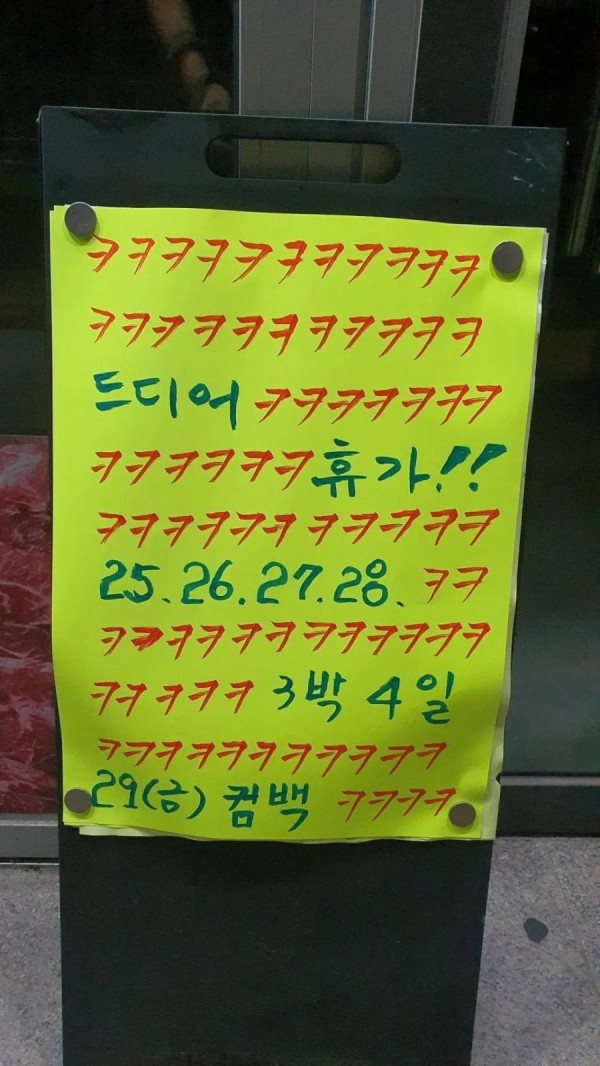 ㅋㅋㅋㅋㅋㅋㅋㅋㅋㅋㅋ
ㅋㅋㅋㅋㅋㅋㅋㅋㅋㅋㅋ
드디어 ㅋㅋㅋㅋㅋㅋㅋ
ㅋㅋㅋㅋㅋㅋ휴가!!
ㅋㅋㅋㅋㅋㅋㅋㅋㅋㅋㅋ
25.26.27.28. ㅋㅋ
ㅋㅋㅋㅋㅋㅋㅋㅋㅋㅋㅋㅋ
ㅋㅋㅋㅋㅋ 3박 4일
ㅋㅋㅋㅋㅋㅋㅋㅋㅋㅋㅋ
29(금) 컴백 ㅋㅋㅋㅋ